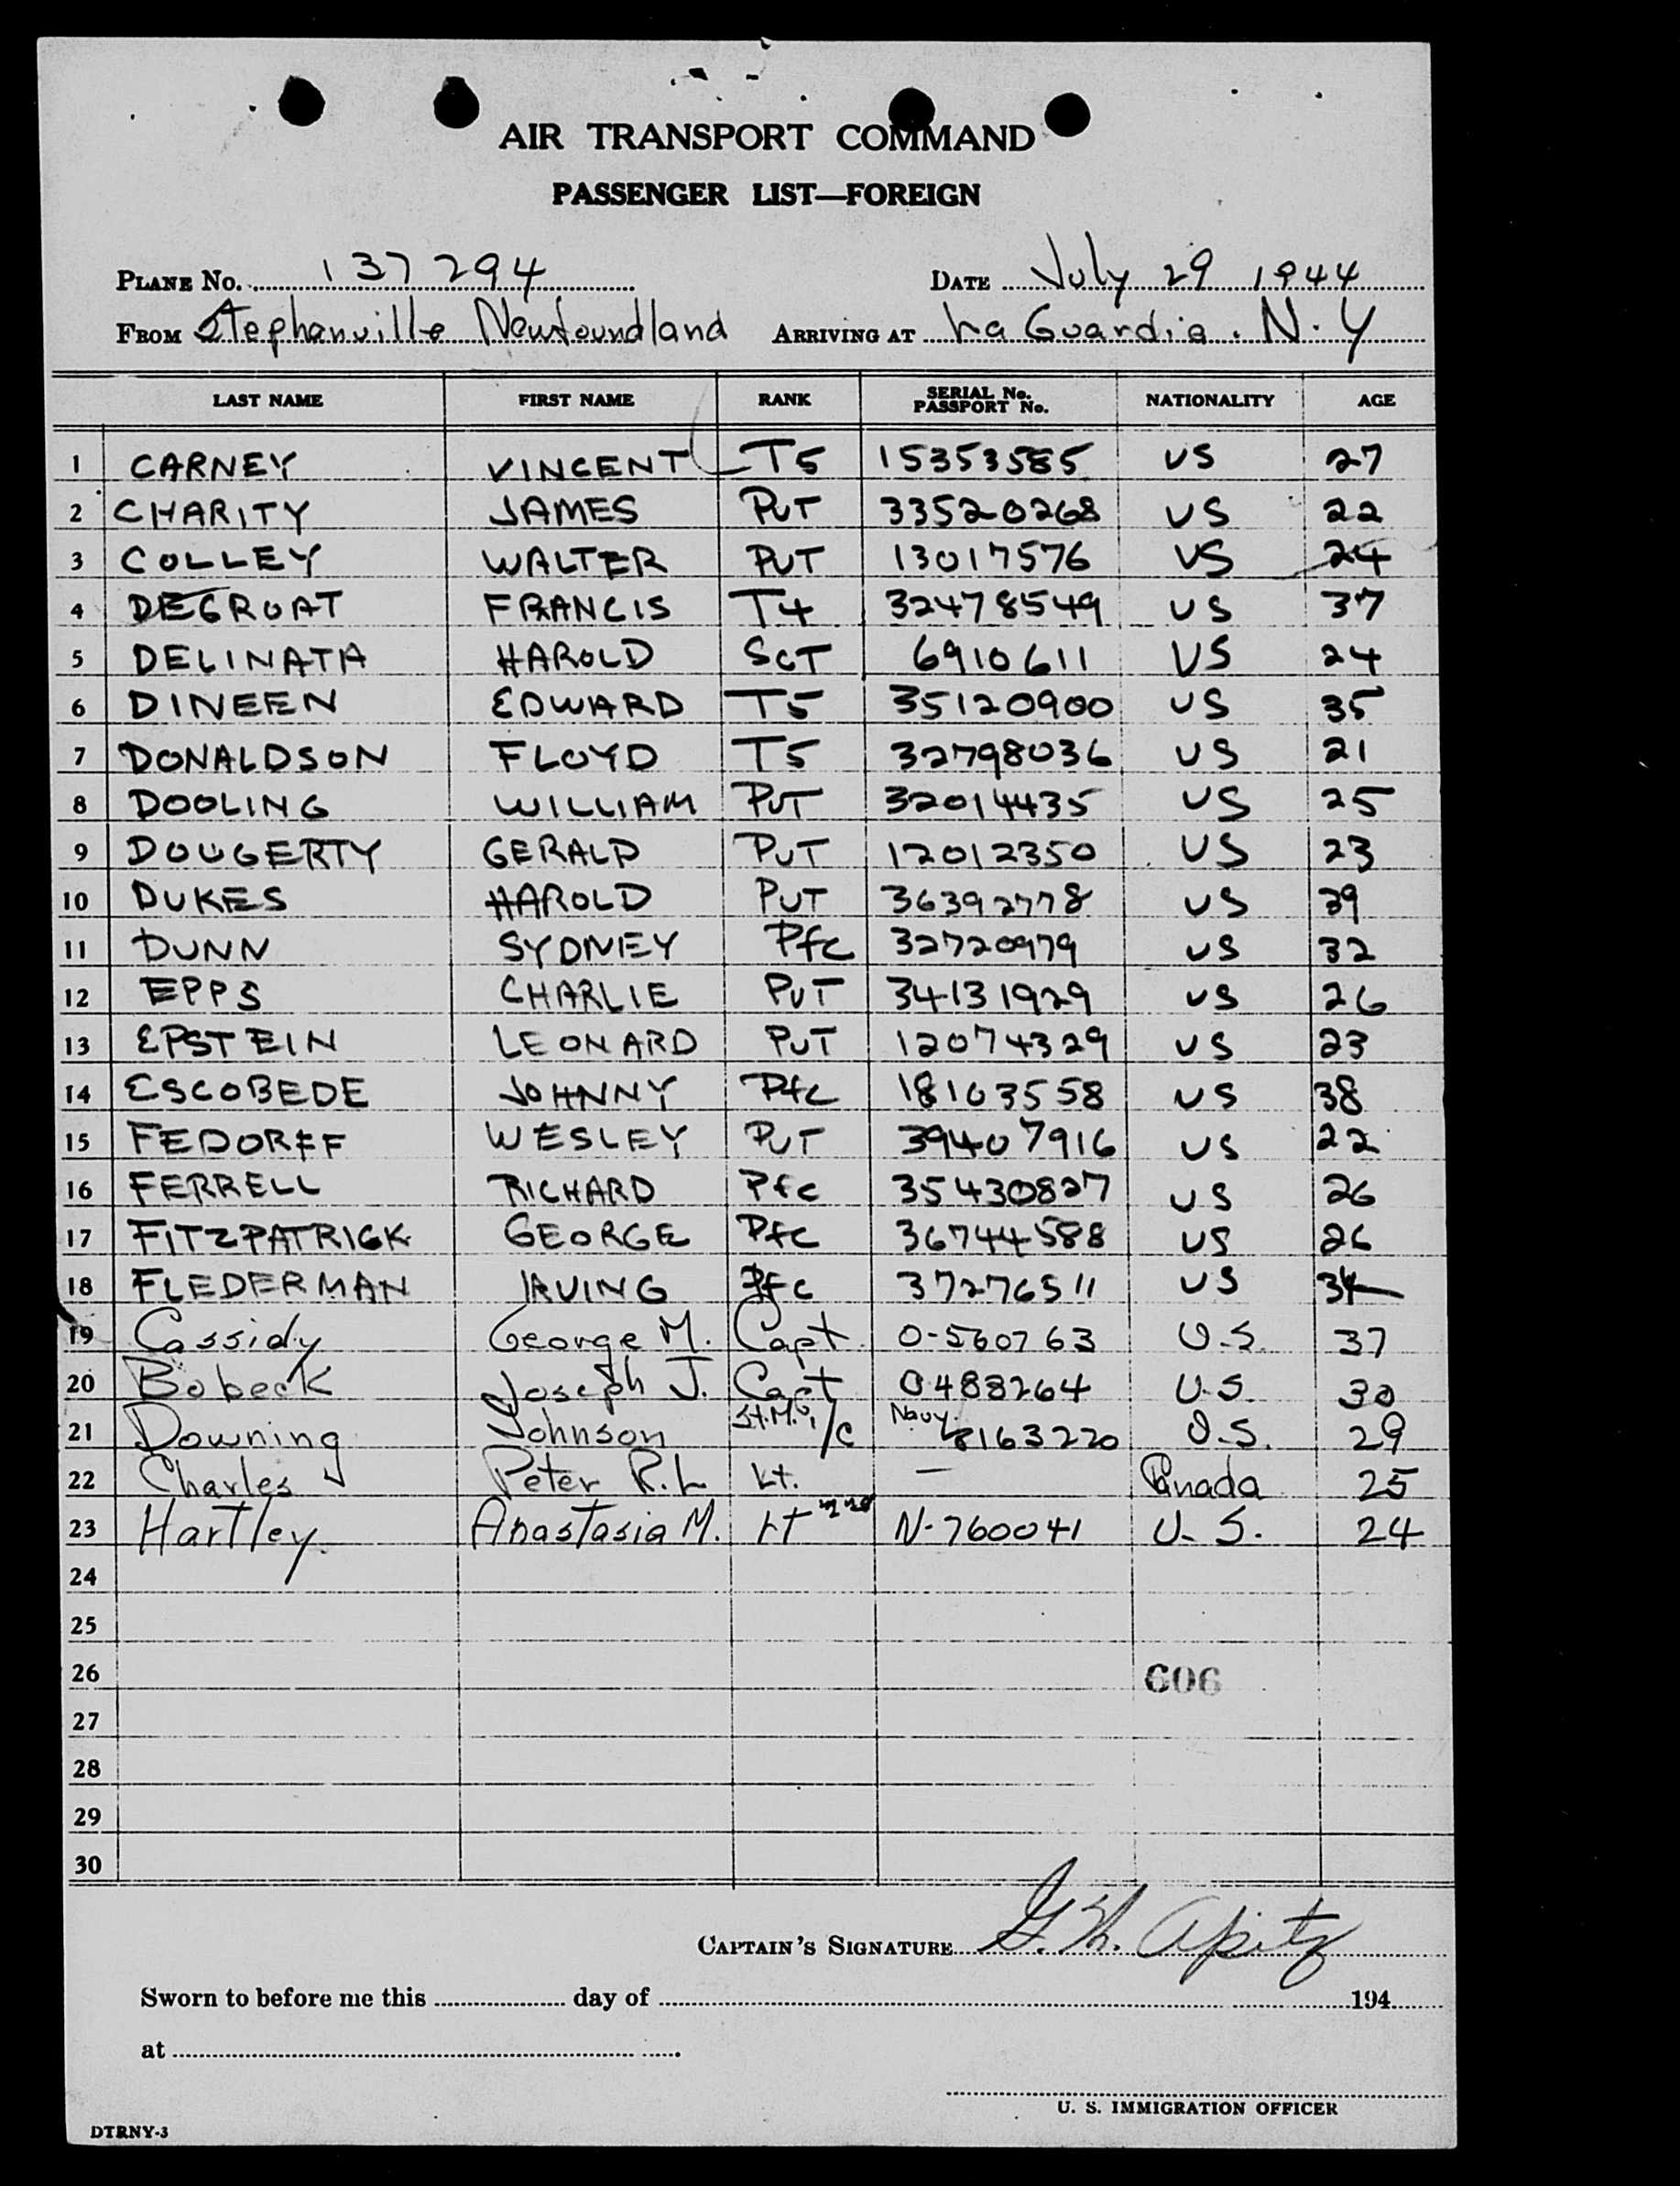 AIR TRANSPORT COMMAND
PASSENGER LIST—FOREIGN
PLANE No. 137294 DATE July 29 1944
FROM Stephanville Newfoundland ARRIVING AT La Guardia. N.Y
LAST NAME FIRST NAME RANK SERIAL No. PASSPORT No. NATIONALITY AGE
1 CARNEY VINCENT T5 15353585 US 27
2 CHARITY JAMES PVT 33520268 US 22
3 COLLEY WALTER PVT 13017576 US 24
4 DEGROAT FRANCIS T4 32478549 US 37
5 DELINATA HAROLD SGT 6910611 US 24
6 DINEEN EDWARD T5 35120900 US 35
7 DONALDSON FLOYD T5 32798036 US 21
8 DOOLING WILLIAM PVT 32014435 US 25
9 DOUGERTY GERALD PVT 12012350 US 23
10 DUKES HAROLD PVT 36392778 US 29
11 DUNN SYDNEY Pfc 32720979 US 32
12 EPPS CHARLIE PVT 34131929 US 26
13 EPSTEIN LEONARD PVT 12074329 US 23
14 ESCOBEDE JOHNNY Pfc 18163558 US 38
15 FEDORFF WESLEY PVT 39407916 US 22
16 FERRELL RICHARD Pfc 35430827 US 26
17 FITZPATRICK GEORGE Pfc 36744588 US 26
18 FLEDERMAN IRVING Pfc 37276511 US 34
19 Cassidy George M. Capt. 0-560763 U.S. 37
20 Bobeck Joseph J. Capt 0488264 U.S. 30
21 Downing Johnson St.M. 1/c Navy 8163220 U.S. 29
22 Charles Peter R.L Lt. — Canada 25
23 Hartley. Anastasia M. Lt 2nd N-760041 U.S. 24
24
25
26 606
27
28
29
30
CAPTAIN'S SIGNATURE G.H. Apitz
Sworn to before me this day of 194
at
U. S. IMMIGRATION OFFICER
DTRNY-3